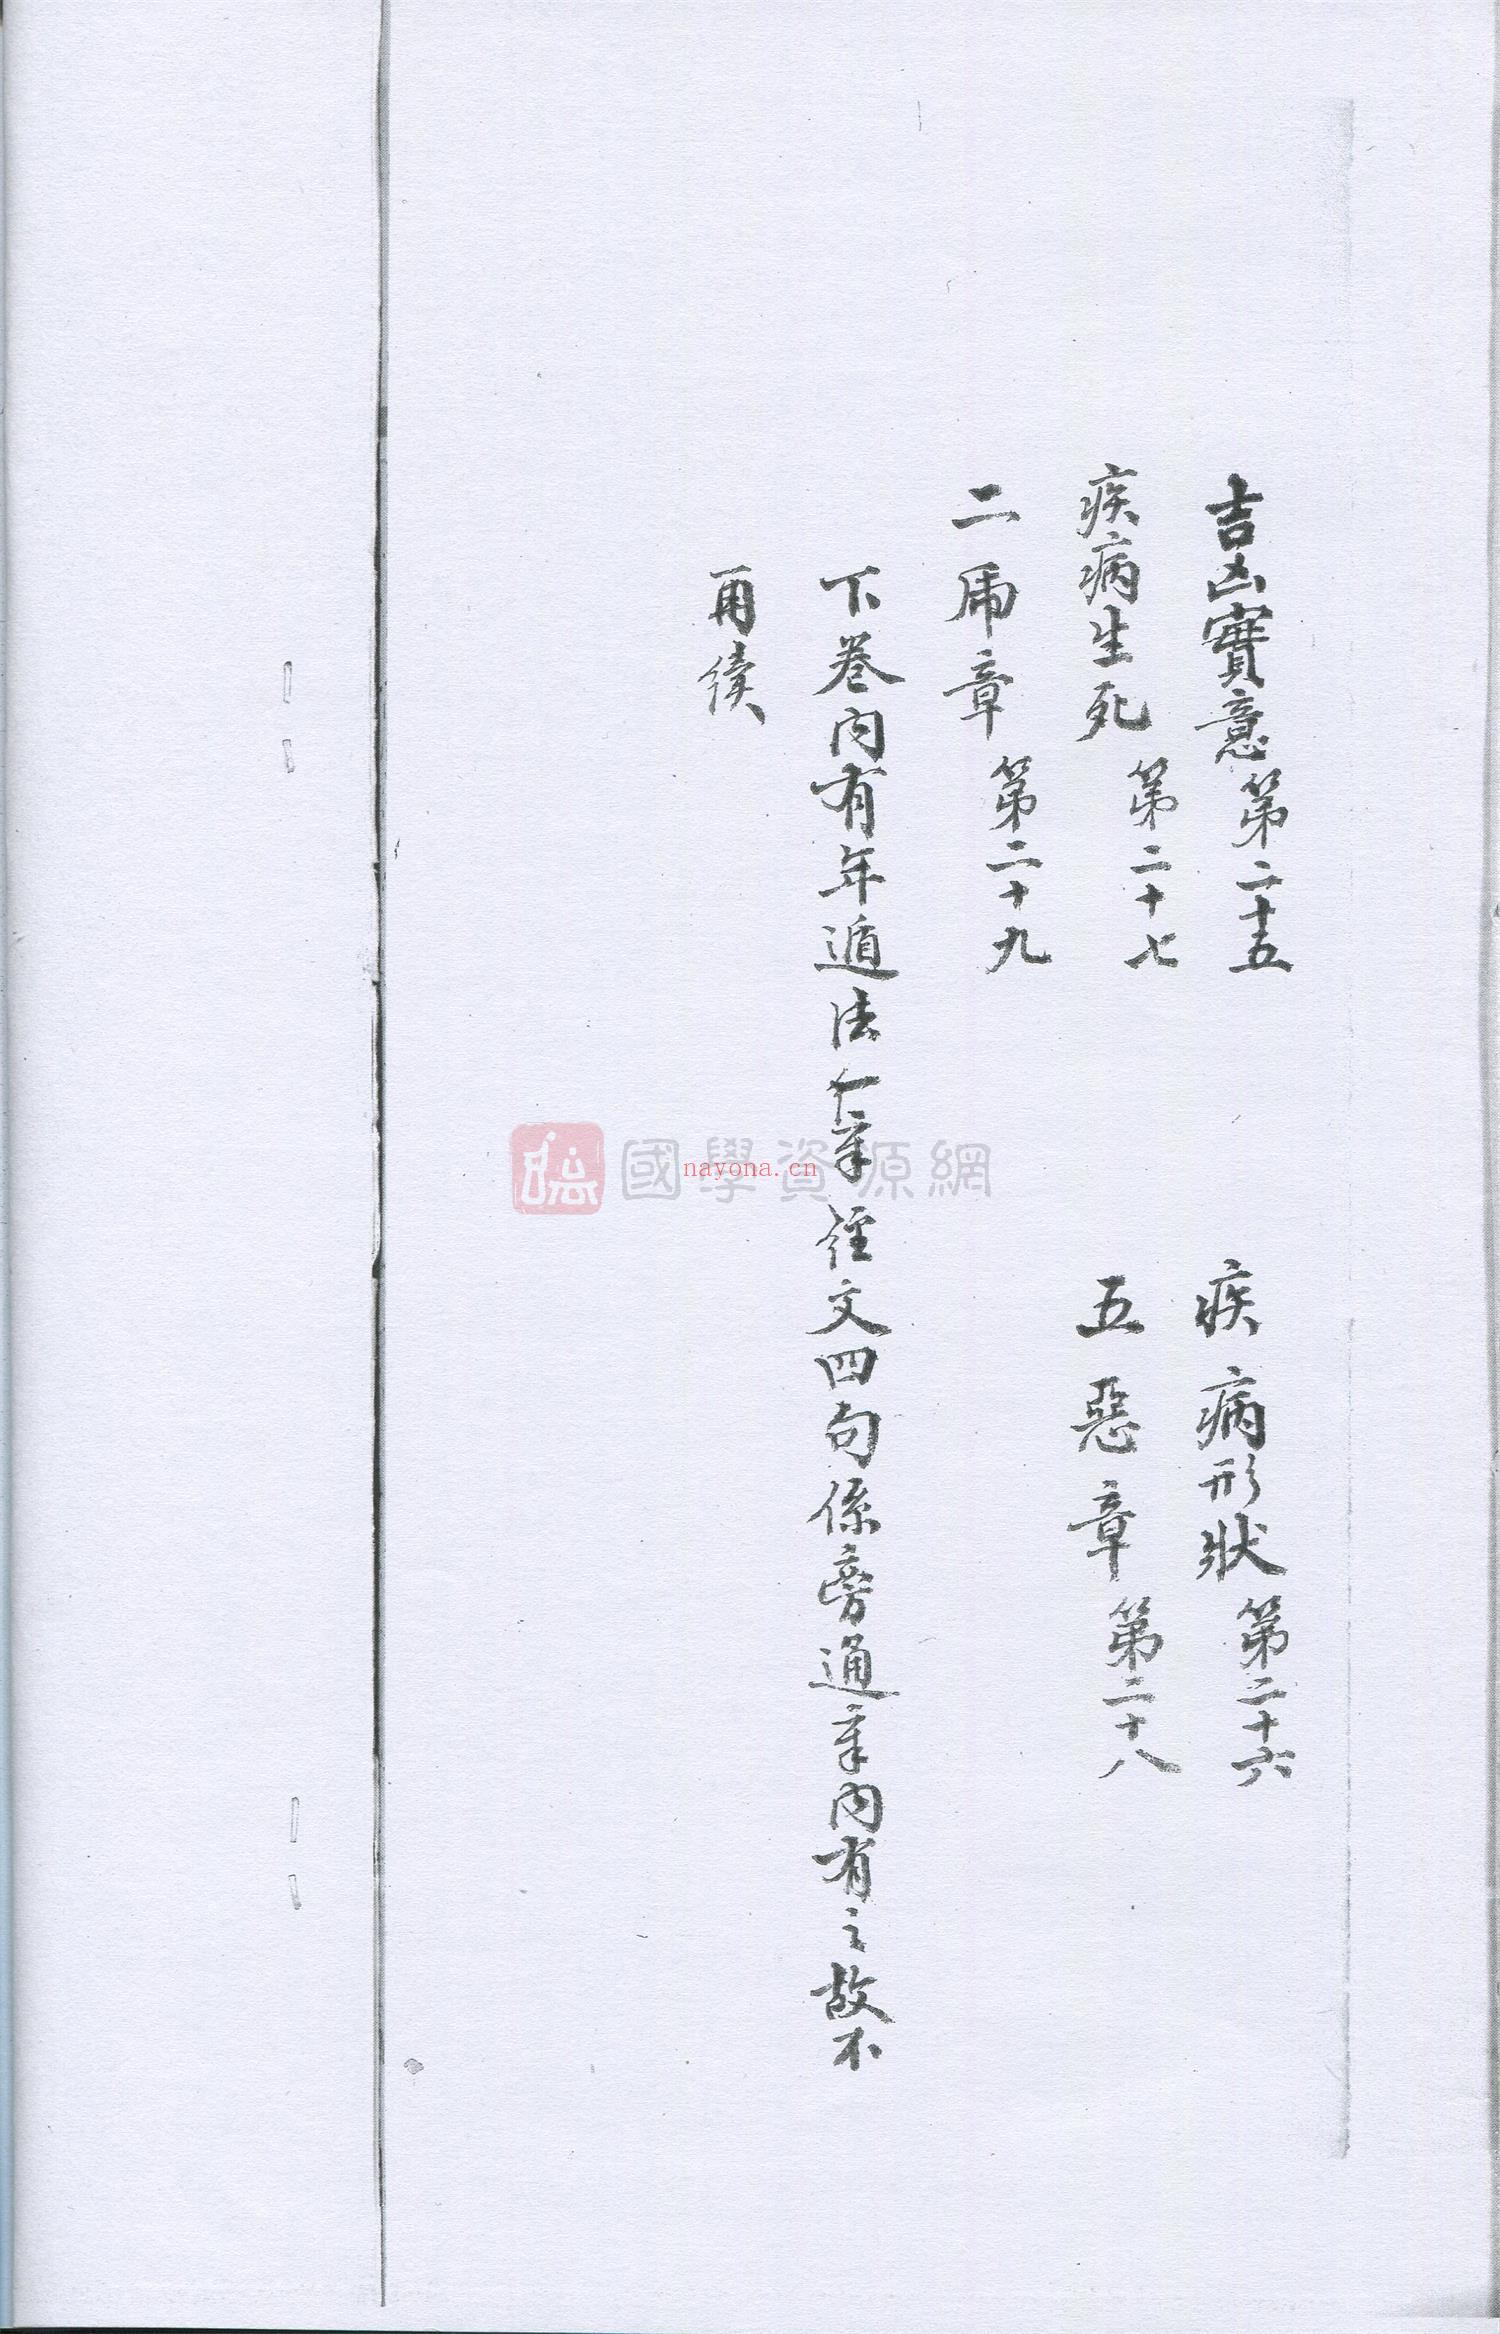 吉凶實意第二十五
疾病形狀第二十六
疾病生死第二十七
五惡章第二十八
二虎章第二十九
下卷内有年遁法一章經文四句係旁通章内有之故不
再續
國學資源網
nayona.cn